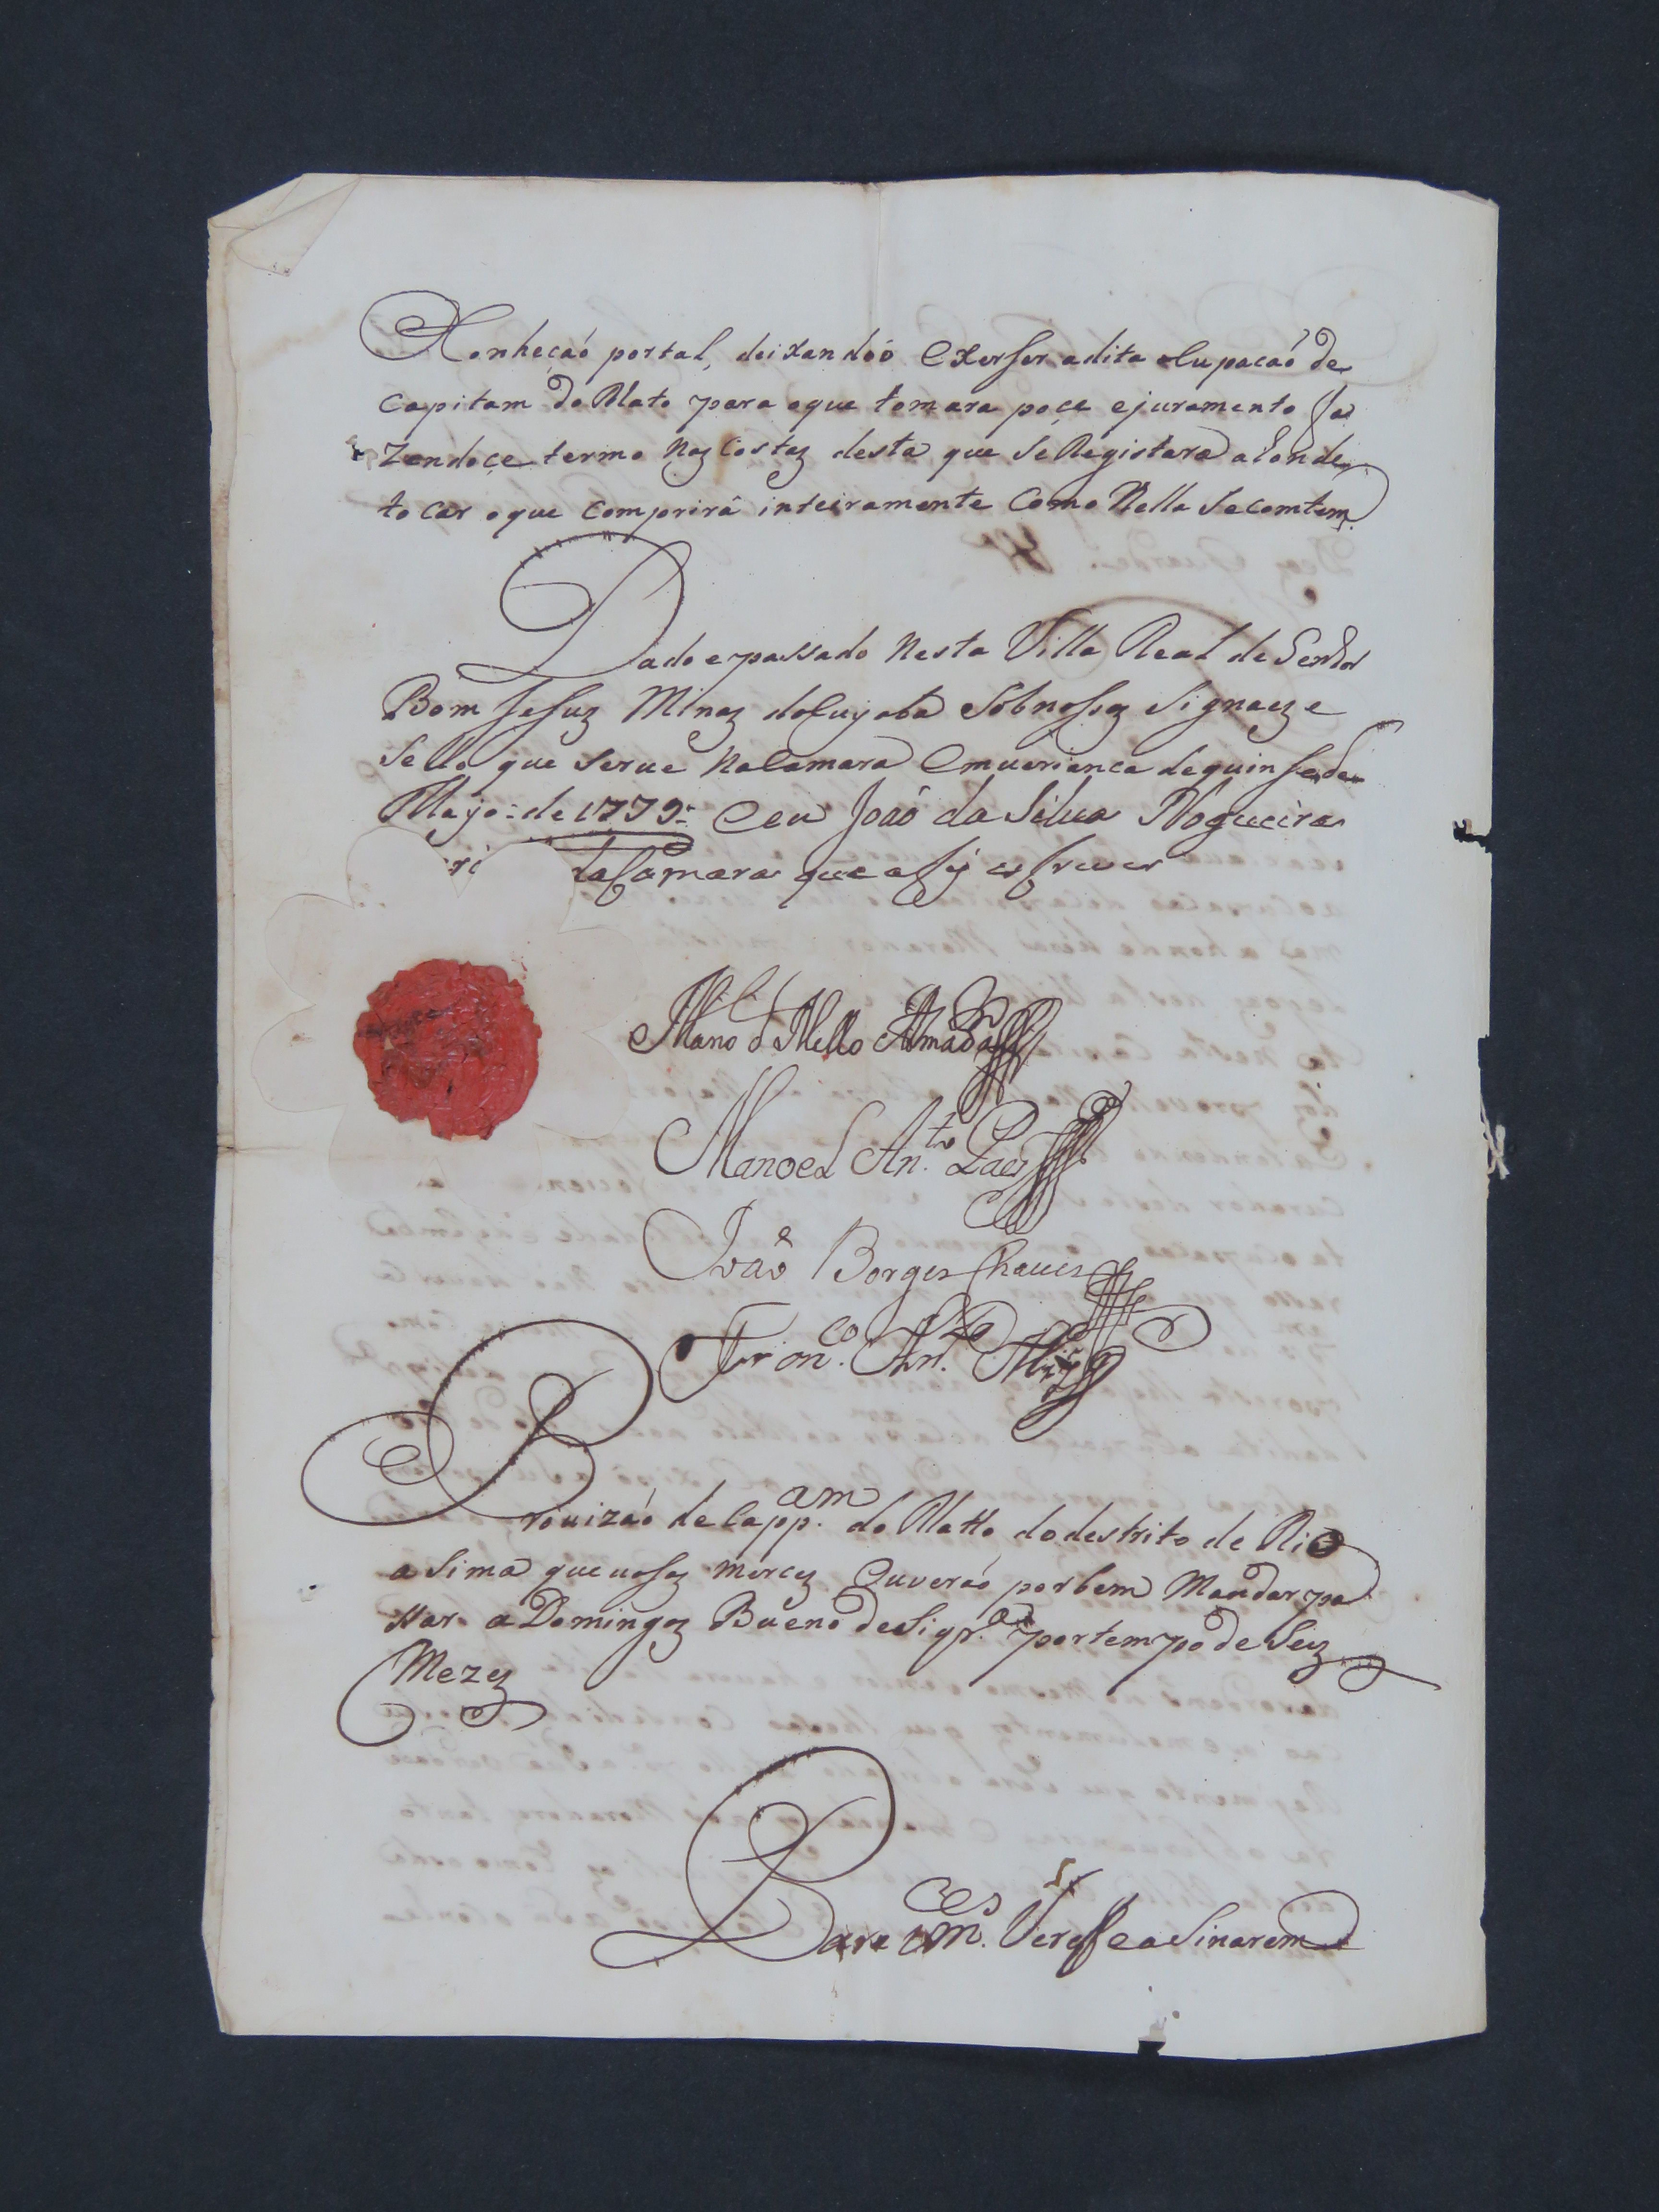 Conheçaó portal, deixandoó Exerser adita ocupacaó de
Capitam do Mato para oque tomara poçe ejuramento fa
zendoçe termo Nas Costas desta que Se Registara a donde
tocar oque Comprirâ inteiramente Como Nella Secomtem.
Dado epassado Nesta Villa Real de Senhor
Bom Jesus Minas doCuyaba Sobnosos Signaes e
Sello que Serue NaCamara Emuerianca dequinse de
Mayo: de 1779: E eu Joaó da Silua Nogueira
ri daCamara que a Sy escreuer
Mano d Mello
Manoel An.to Paes
Joaó Borges Chaues
Fran.co An.to
Prouizaó de Capp.am do Matto do destrito de Rio
a Sima que uosas merces Ouveraó porbem Mandar pa
ssar a Domingos Bueno deSiqr.a portempo de Seis
Mezes
Para Vm.ces Verem e aSinarem